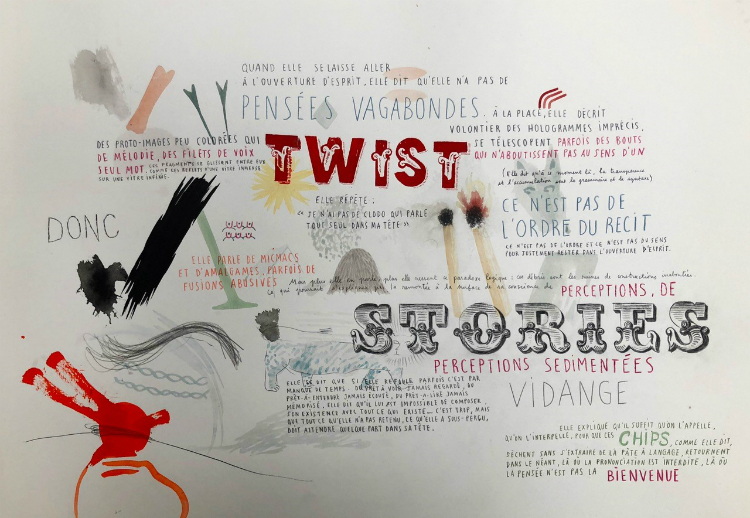 QUAND ELLE SE LAISSE ALLER
À L'OUVERTURE D'ESPRIT, ELLE DIT QU'ELLE N'A PAS DE
PENSÉES VAGABONDES. À LA PLACE, ELLE DÉCRIT
VOLONTIER DES HOLOGRAMMES IMPRÉCIS,
DES PROTO-IMAGES PEU COLORÉES QUI
SE TÉLESCOPENT PARFOIS DES BOUTS
DE MÉLODIE, DES FILETS DE VOIX
QUI N'ABOUTISSENT PAS AU SENS D'UN
SEUL MOT. CES FRAGMENTS GLISSENT ENTRE EUX
COMME LES REFLETS D'UNE VITRE IMMERGÉE
SUR UNE VITRE
TWIST
(Elle dit qu'à ce moment là, la transparence
et l'accumulation sont la grammaire et la syntaxe)
ELLE RÉPÈTE :
« JE N'AI PAS DE CLODO QUI PARLE
TOUT SEUL DANS MA TÊTE »
CE N'EST PAS DE
L'ORDRE DU RECIT
CE N'EST PAS DE L'ORDRE ET CE N'EST PAS DU SENS
POUR JUSTEMENT RESTER DANS L'OUVERTURE D'ESPRIT.
DONC
ELLE PARLE DE MICMACS
ET D'AMALGAMES, PARFOIS DE
FUSIONS ABUSIVES
Mais plus elle en parle, plus elle ressent ce paradoxe logique : ces débris sont les ruines de constructions
la remontée à la surface de sa conscience de PERCEPTIONS, DE
STORIES
PERCEPTIONS SEDIMENTÉES
VIDANGE
ELLE SE DIT QUE SI ELLE REFOULE PARFOIS C'EST PAR
MANQUE DE TEMPS. DU PRÊT À VOIR JAMAIS REGARDÉ, DU
PRÊT-À-ENTENDRE JAMAIS ÉCOUTÉ, DU PRÊT-À-LIRE JAMAIS
MÉMORISÉ, ELLE DIT QU'IL LUI EST IMPOSSIBLE DE COMPOSER
SON EXISTENCE AVEC TOUT CE QUI EXISTE... C'EST TROP, MAIS
QUE TOUT CE QU'ELLE N'A PAS RETENU, CE QU'ELLE A SOUS-PERÇU,
DOIT ATTENDRE QUELQUE PART DANS SA TÊTE.
ELLE EXPLIQUE QU'IL SUFFIT QU'ON L'APPELLE,
QU'ON L'INTERPELLE, POUR QUE CES CHIPS, COMME ELLE DIT,
SÈCHENT SANS S'EXTRAIRE DE LA PÂTE À LANGAGE, RETOURNENT
DANS LE NÉANT, LÀ OÙ LA PRONONCIATION EST INTERDITE, LÀ OÙ
LA PENSÉE N'EST PAS LA BIENVENUE